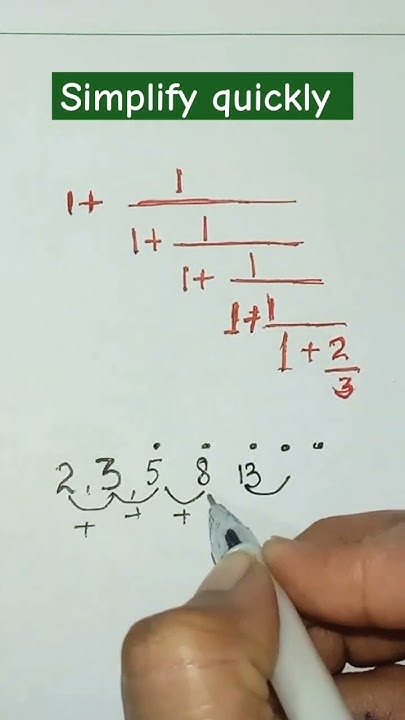 Simplify quickly
1+ 1
1+ 1
1+ 1
1+ 1
1 + 2
3
2, 3, 5 8 13
+ + +